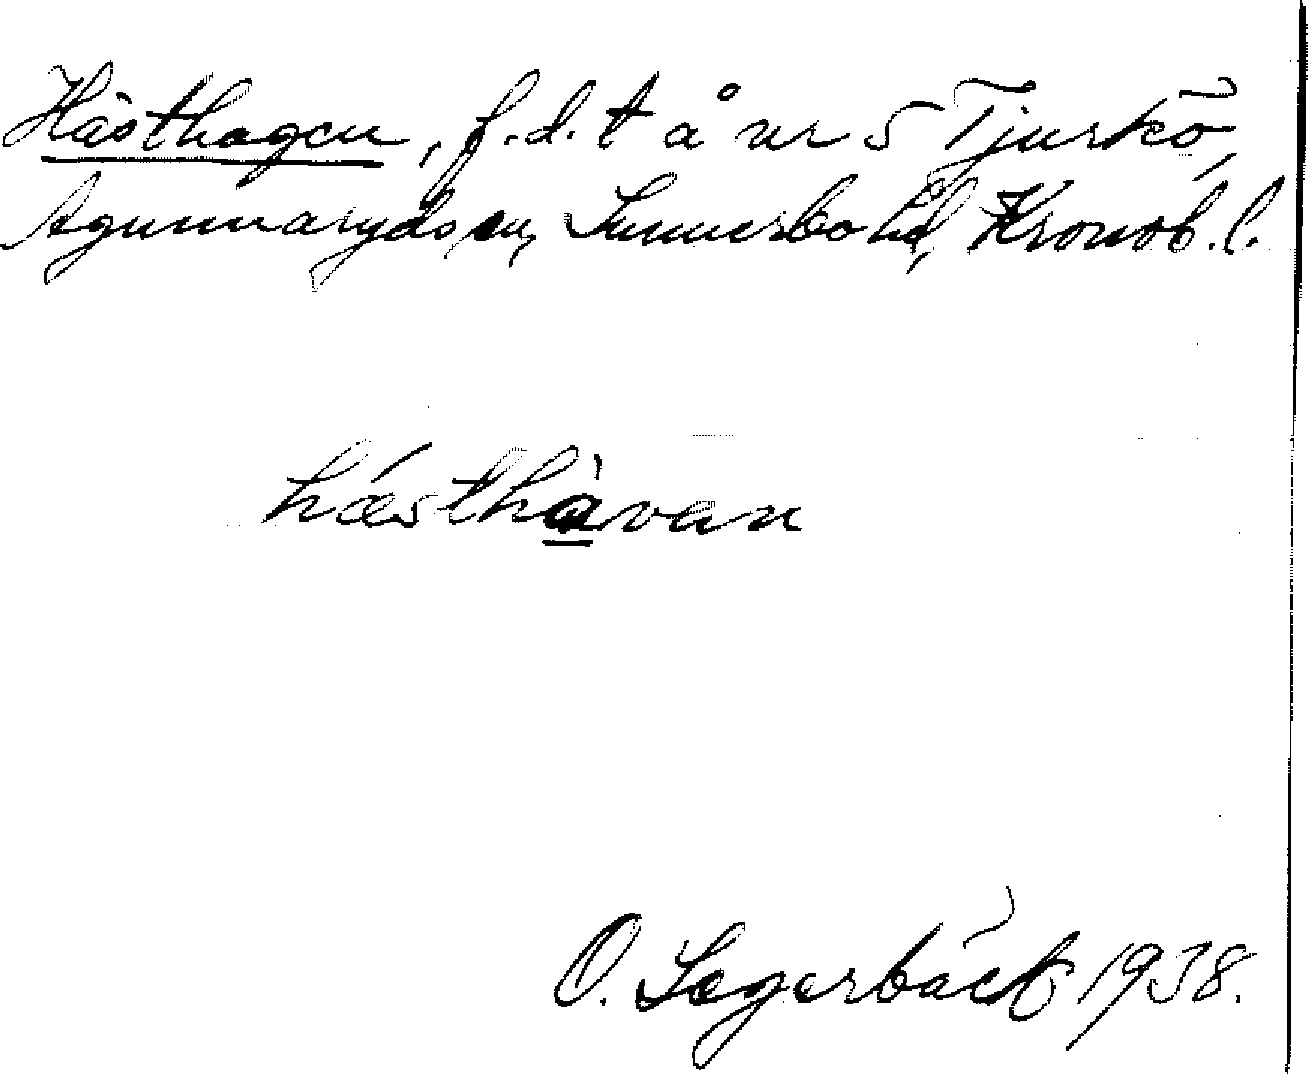 Hästhagen, f.d. t å nr 5 Tjurkö,
Agunnaryds sn, Sunnerbo hd, Kronob. l.
hæ̀sthàvan
O. Segerbäck 1938.